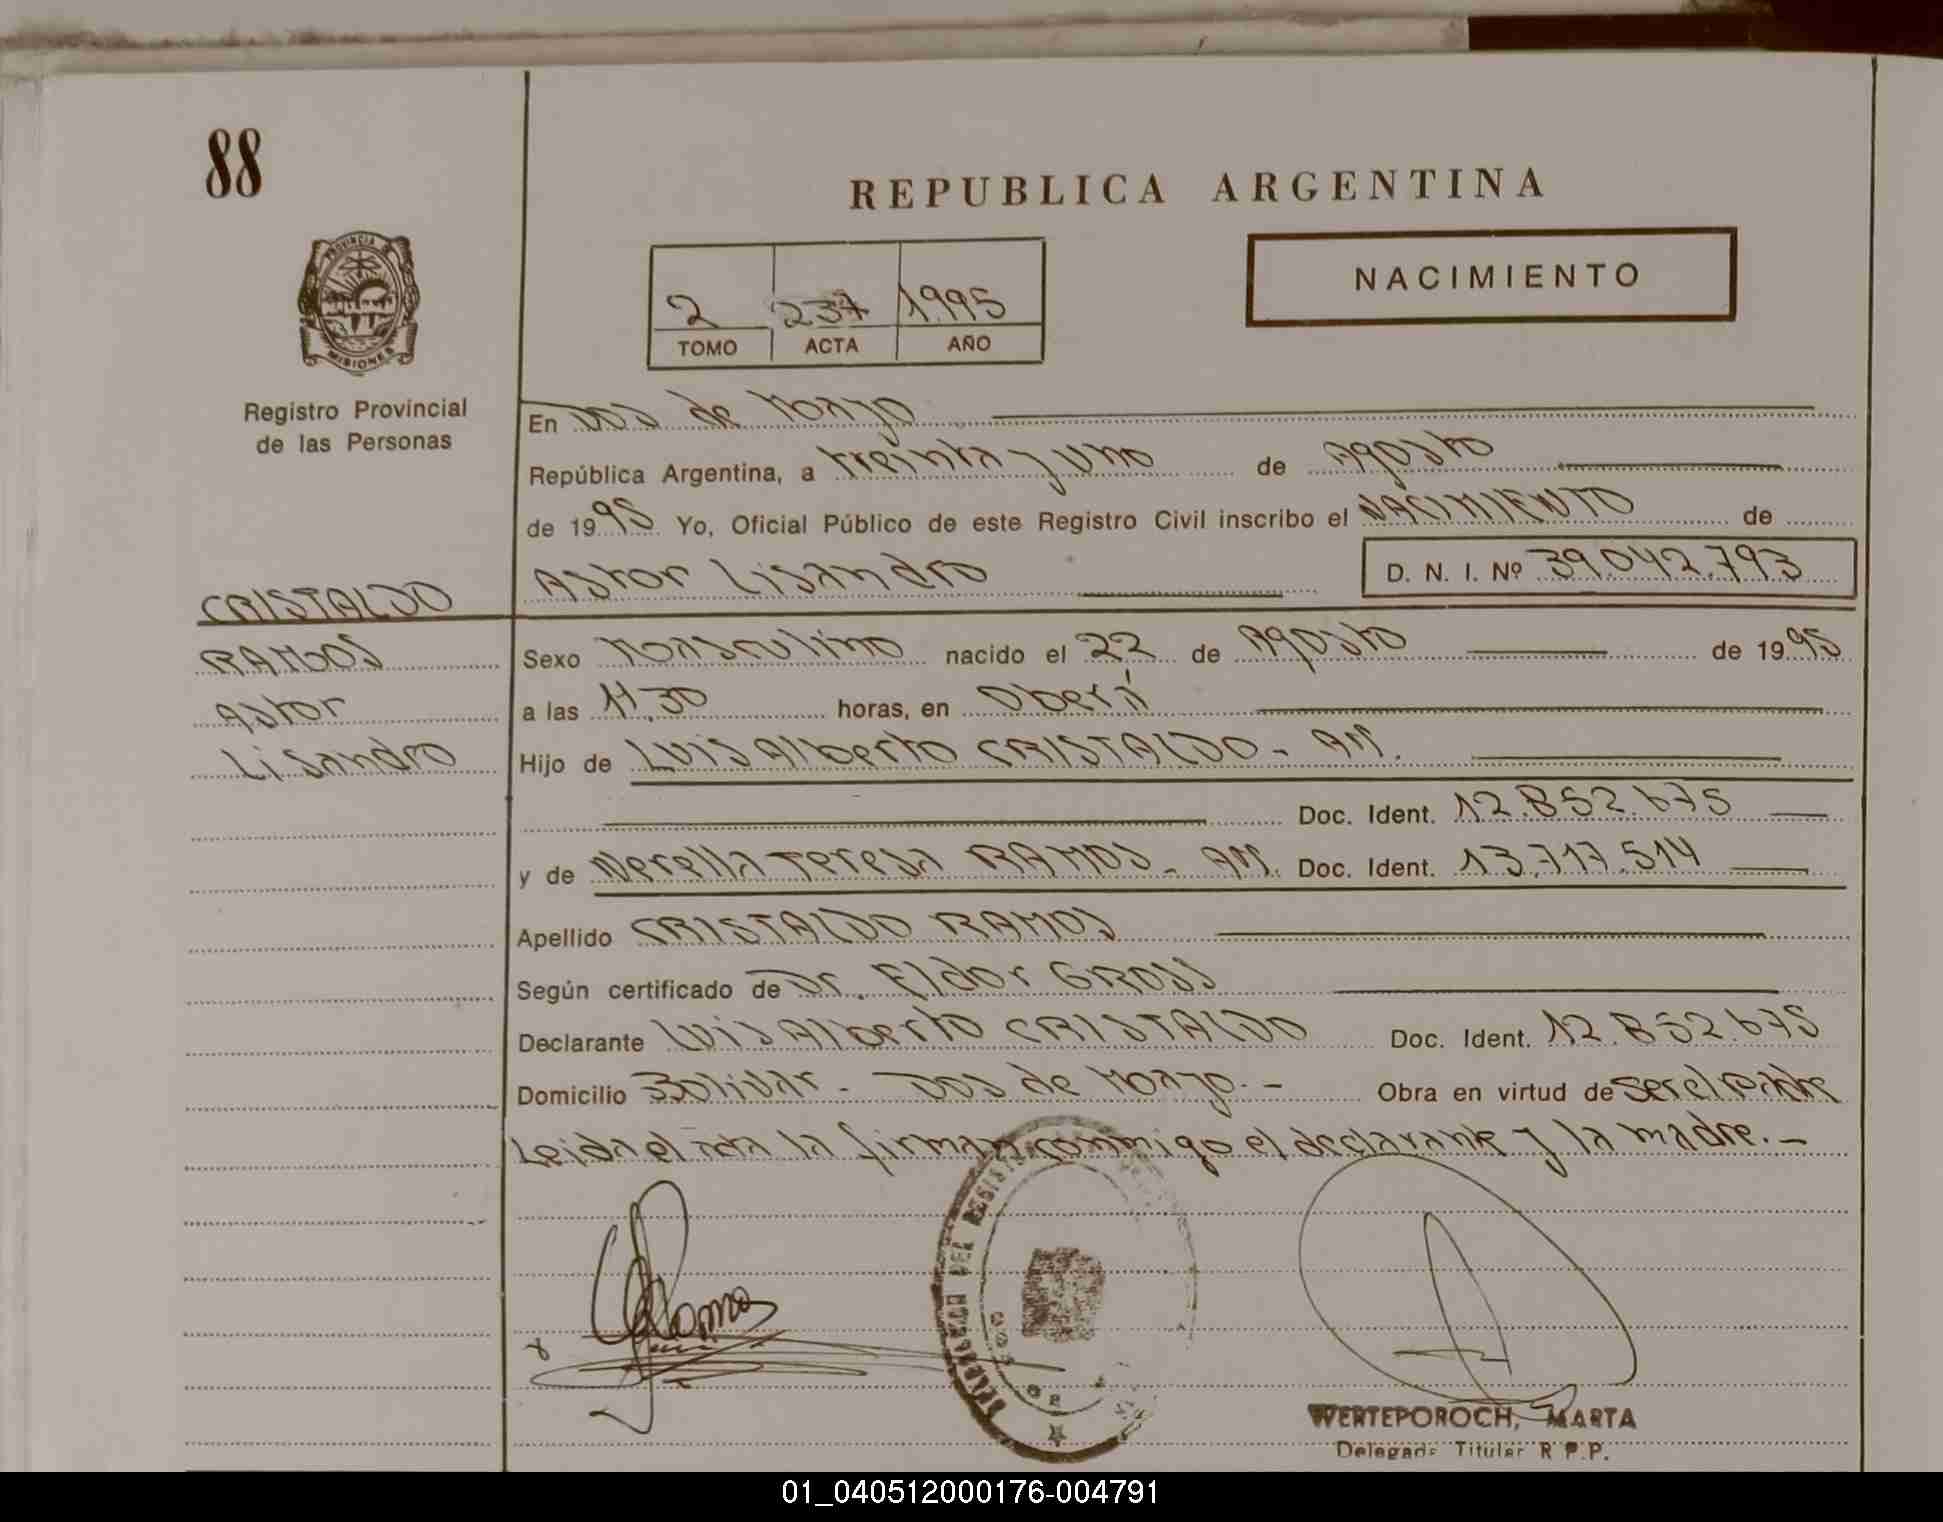 88
REPUBLICA ARGENTINA
PROVINCIA DE
MISIONES
Registro Provincial
de las Personas
2 237 1995
TOMO ACTA AÑO
NACIMIENTO
En Dos de Mayo
República Argentina, a treinta y uno de Agosto
de 1995 Yo, Oficial Público de este Registro Civil inscribo el NACIMIENTO de
Astor Lisandro D. N. I. Nº 39.042.793
CRISTALDO
RAMOS
Astor
Lisandro
Sexo Masculino nacido el 22 de Agosto de 1995
a las 11,30 horas, en Oberá
Hijo de Luis Alberto CRISTALDO - AM.
Doc. Ident. 12.852.675
y de Nerella Teresa RAMOS - AM. Doc. Ident. 13.717.514
Apellido CRISTALDO RAMOS
Según certificado de Dr. Eldor GROSS
Declarante Luis Alberto CRISTALDO Doc. Ident. 12.852.675
Domicilio Bolivar - Dos de Mayo. - Obra en virtud de ser el padre
Leida el acta la firman conmigo el declarante y la madre. -
DEL REGISTRO
WERTEPOROCH, MARTA
Delegada Titular R.P.P.
01_040512000176-004791